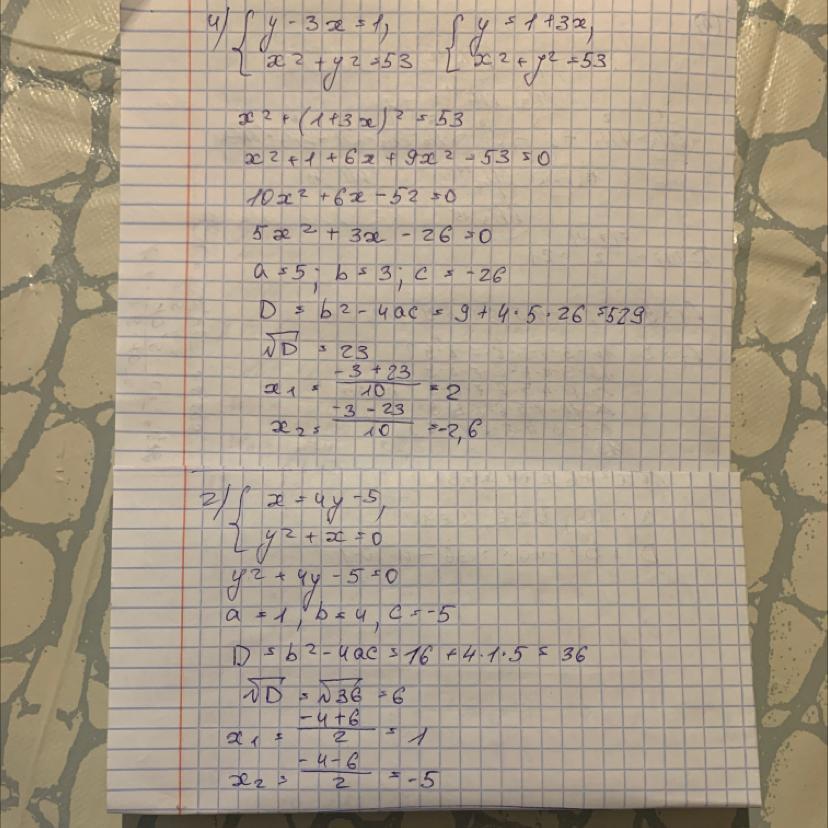 4) { y - 3x = 1,   { y = 1 + 3x,
x² + y² = 53   x² + y² = 53
x² + (1 + 3x)² = 53
x² + 1 + 6x + 9x² - 53 = 0
10x² + 6x - 52 = 0
5x² + 3x - 26 = 0
a = 5; b = 3; c = -26
D = b² - 4ac = 9 + 4·5·26 = 529
√D = 23
x₁ = (-3 + 23)/10 = 2
x₂ = (-3 - 23)/10 = -2,6
2) { x = 4y - 5,
y² + x = 0
y² + 4y - 5 = 0
a = 1, b = 4, c = -5
D = b² - 4ac = 16 + 4·1·5 = 36
√D = √36 = 6
x₁ = (-4 + 6)/2 = 1
x₂ = (-4 - 6)/2 = -5